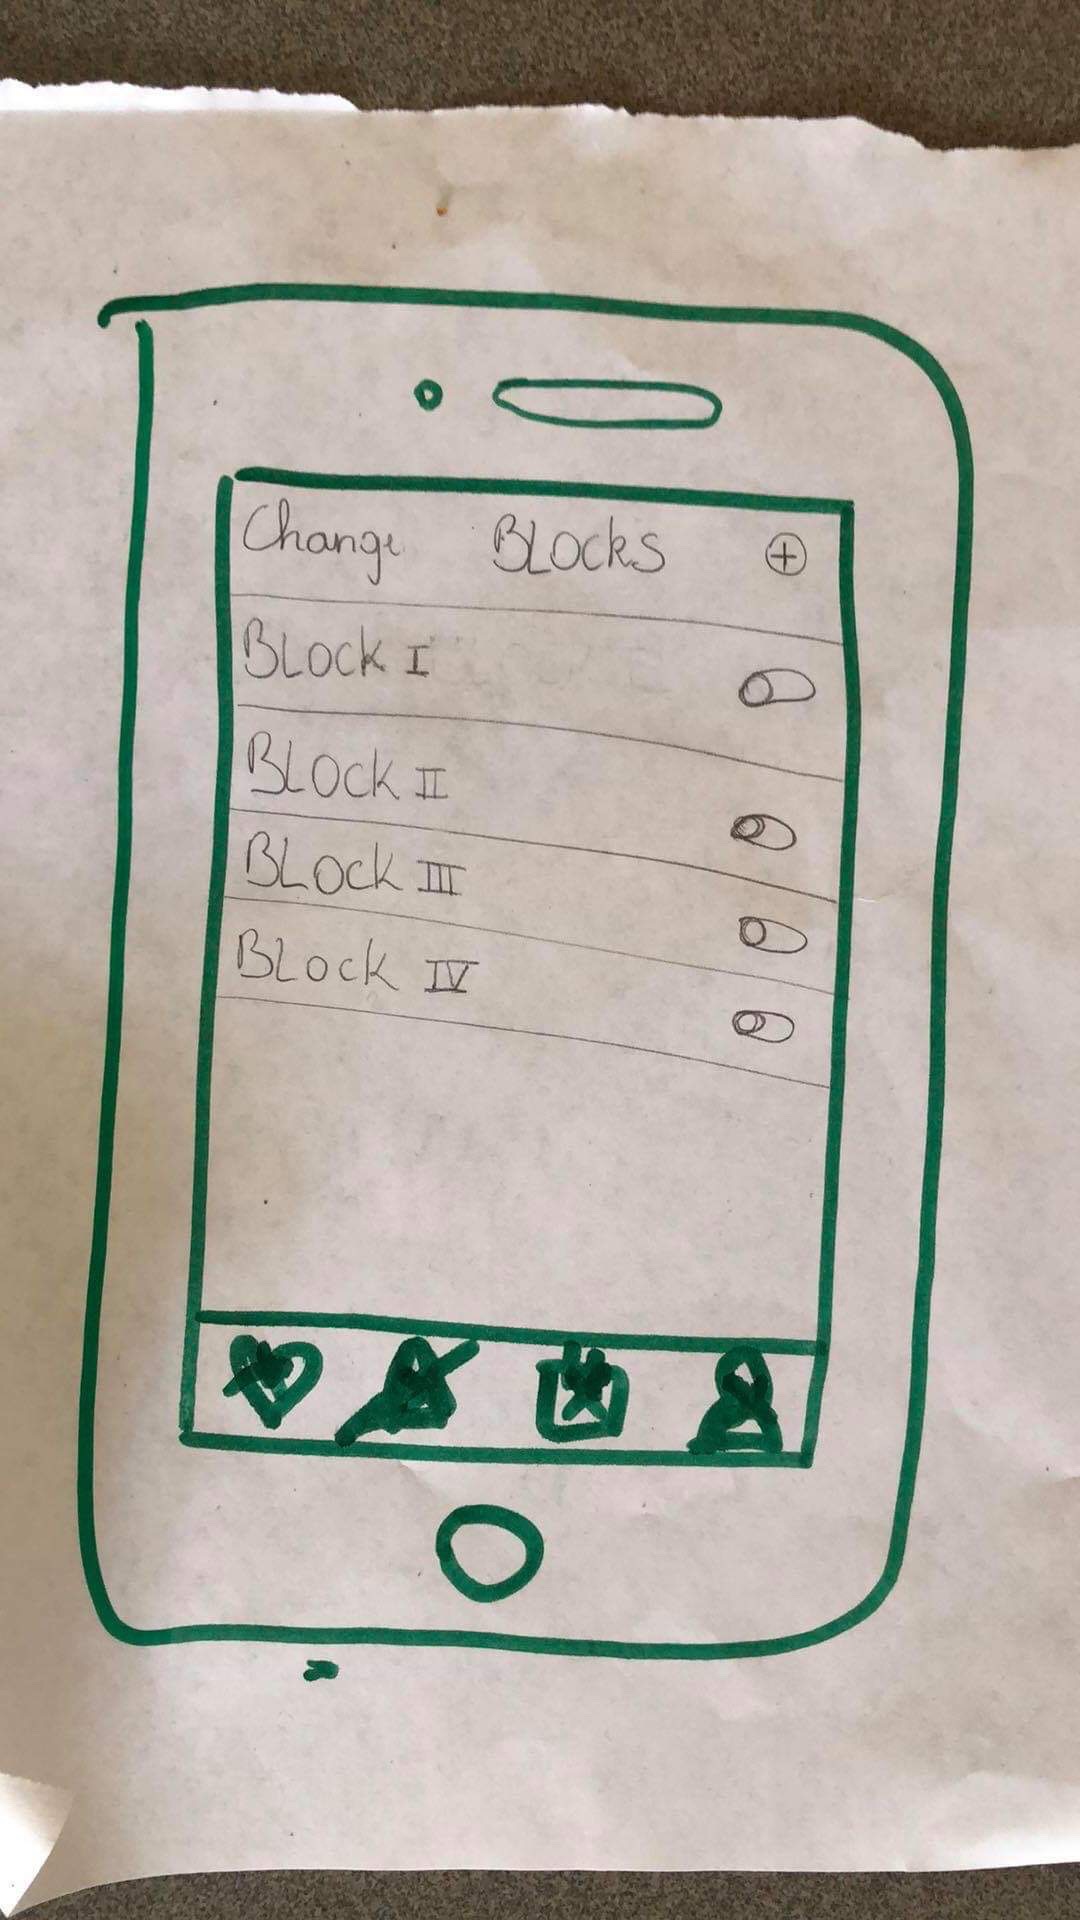 Change BLOCKS +
BLOCK I
BLOCK II
BLOCK III
BLOCK IV